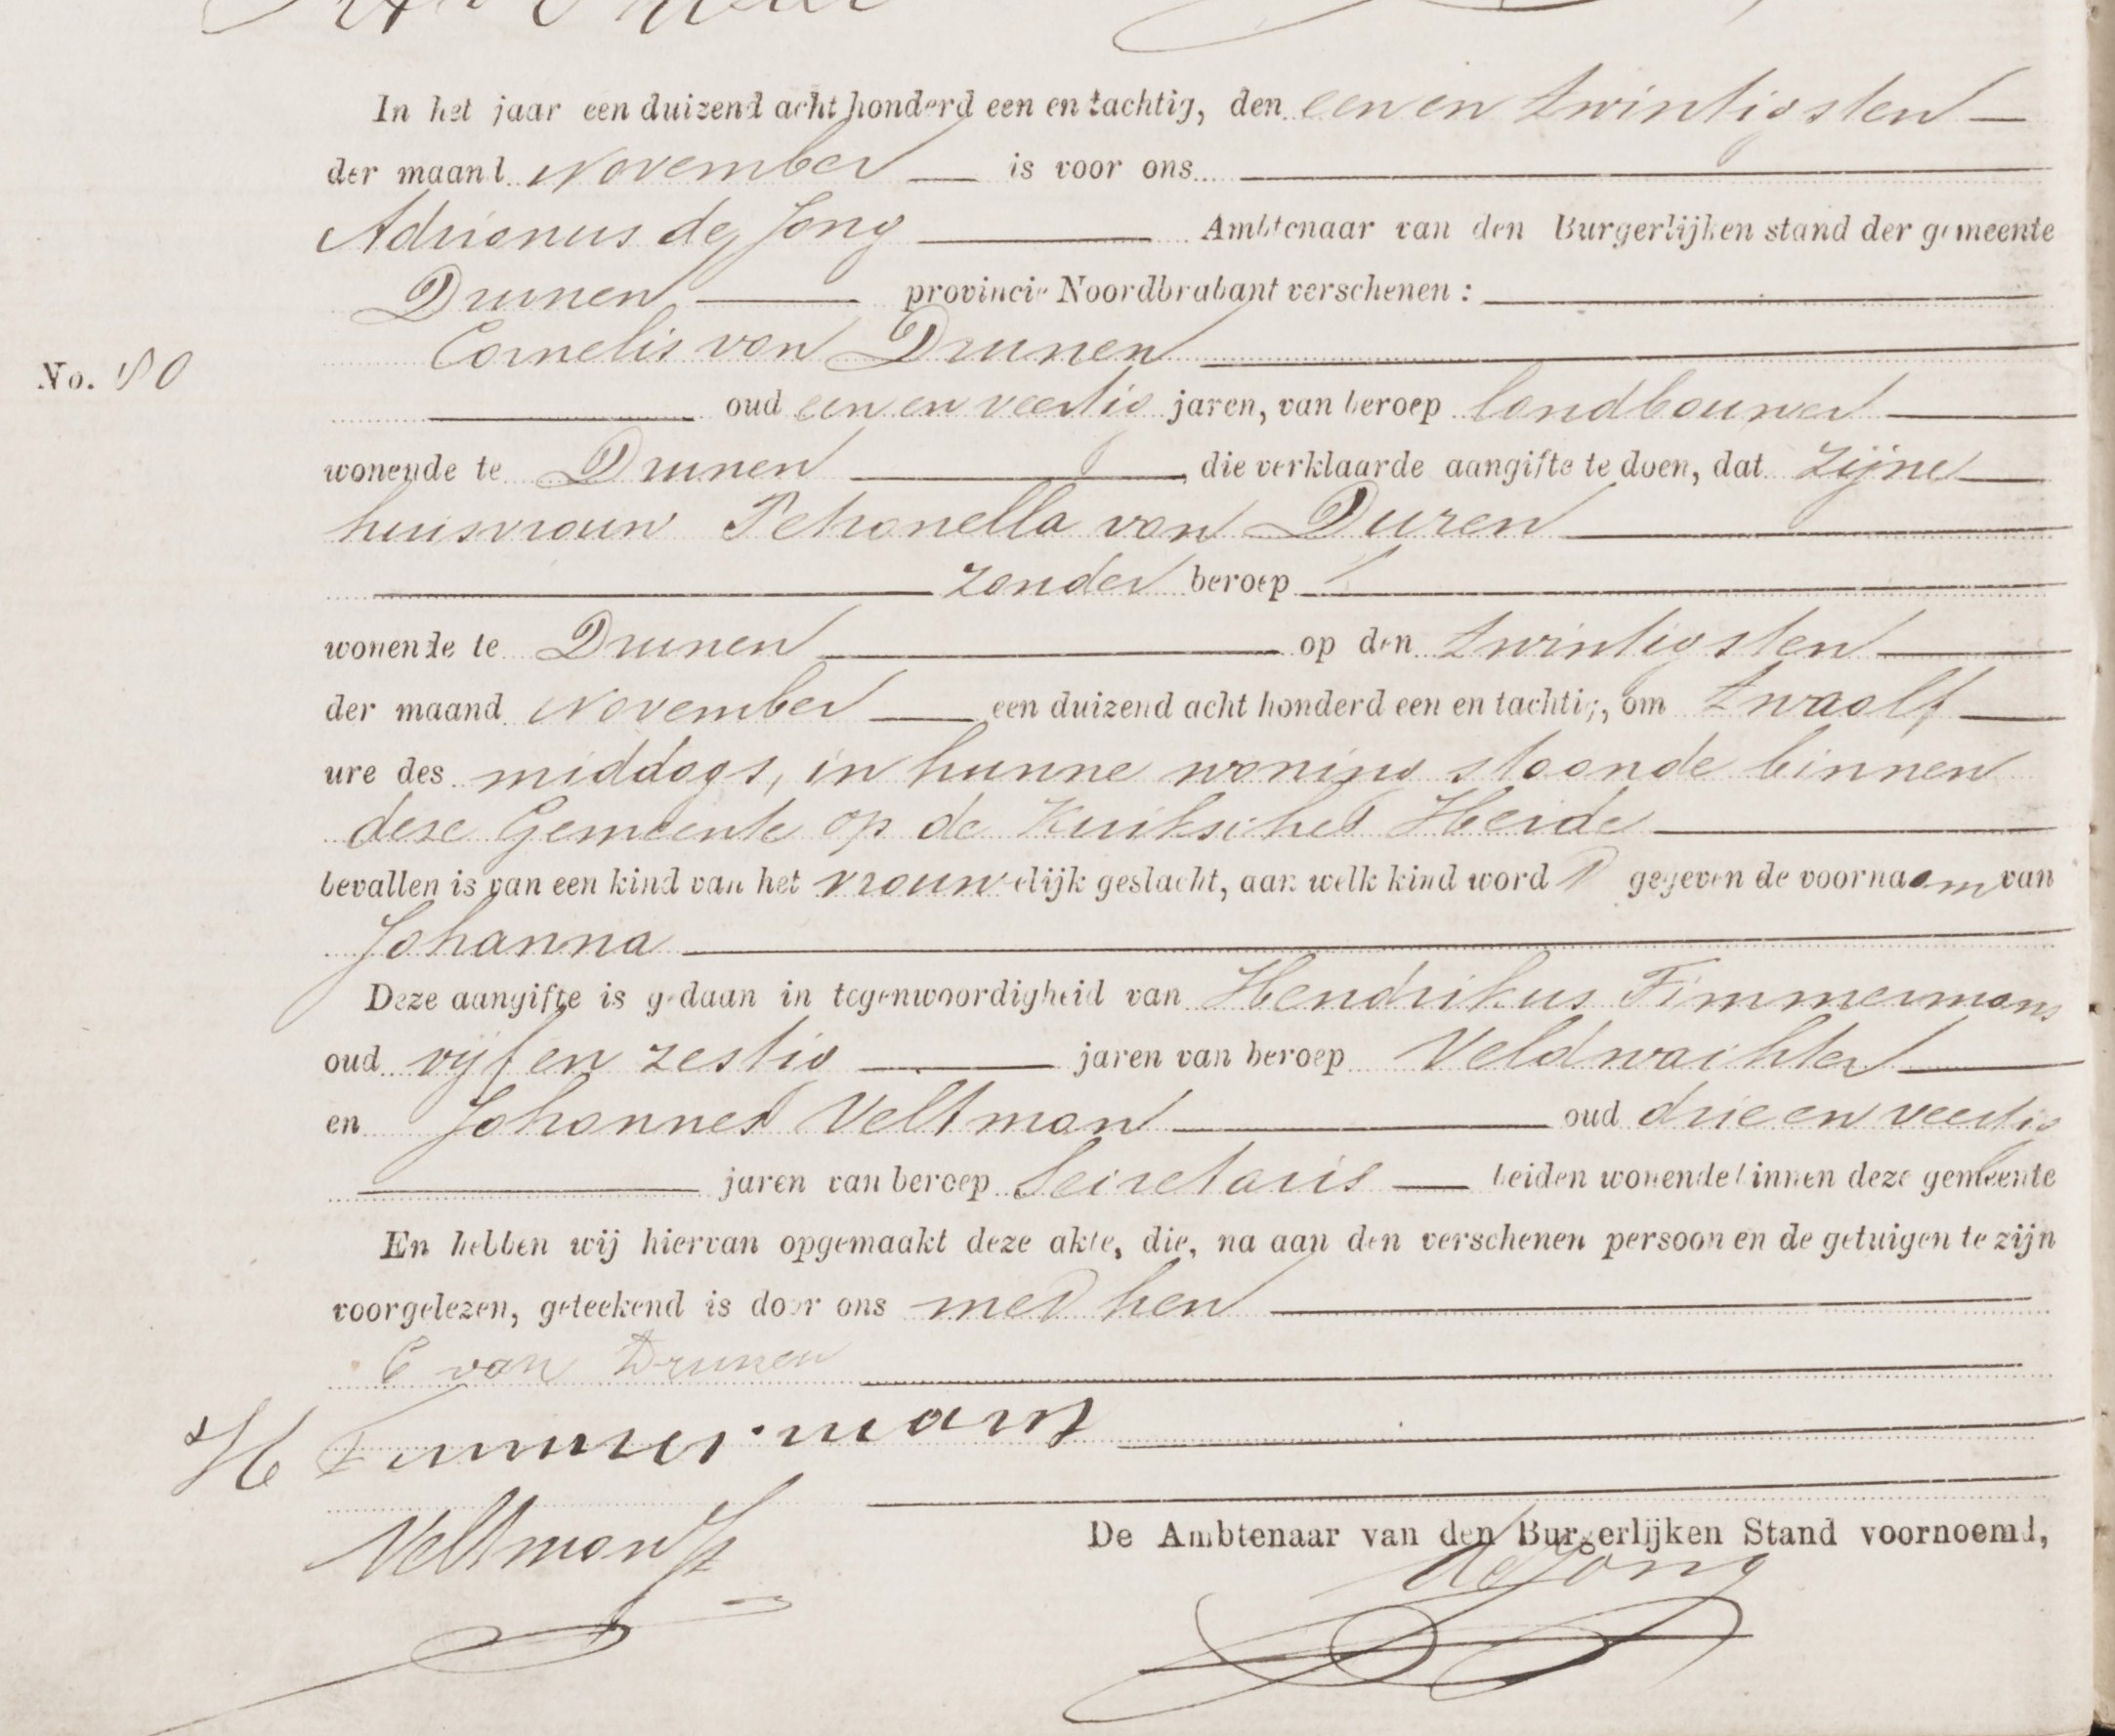 In het jaar een duizend acht honderd een en tachtig, den een en twintigsten
der maand November is voor ons
Adrianus de Jong Ambtenaar van den Burgerlijken stand der gemeente
Drunen provincie Noordbrabant verschenen :
Cornelis van Drunen
No. 80
oud een en veertig jaren, van beroep landbouwer
wonende te Drunen , die verklaarde aangifte te doen, dat zijne
huisvrouw Petronella van Duren
zonder beroep
wonende te Drunen op den twintigsten
der maand November een duizend acht honderd een en tachtig, om twaalf
ure des middags, in hunne woning staande binnen
deze Gemeente op de Heide
bevallen is van een kind van het vrouwelijk geslacht, aan welk kind wordt gegeven de voornaam van
Johanna
Deze aangifte is gedaan in tegenwoordigheid van Hendrikus Timmermans
oud vijf en zestig jaren van beroep Veldwachter
en Johannes Veltman oud drie en veertig
jaren van beroep Secretaris beiden wonende binnen deze gemeente
En hebben wij hiervan opgemaakt deze akte, die, na aan den verschenen persoon en de getuigen te zijn
voorgelezen, geteekend is door ons met hen
C van Drunen
H Timmermans
Veltman
De Ambtenaar van den Burgerlijken Stand voornoemd,
de Jong